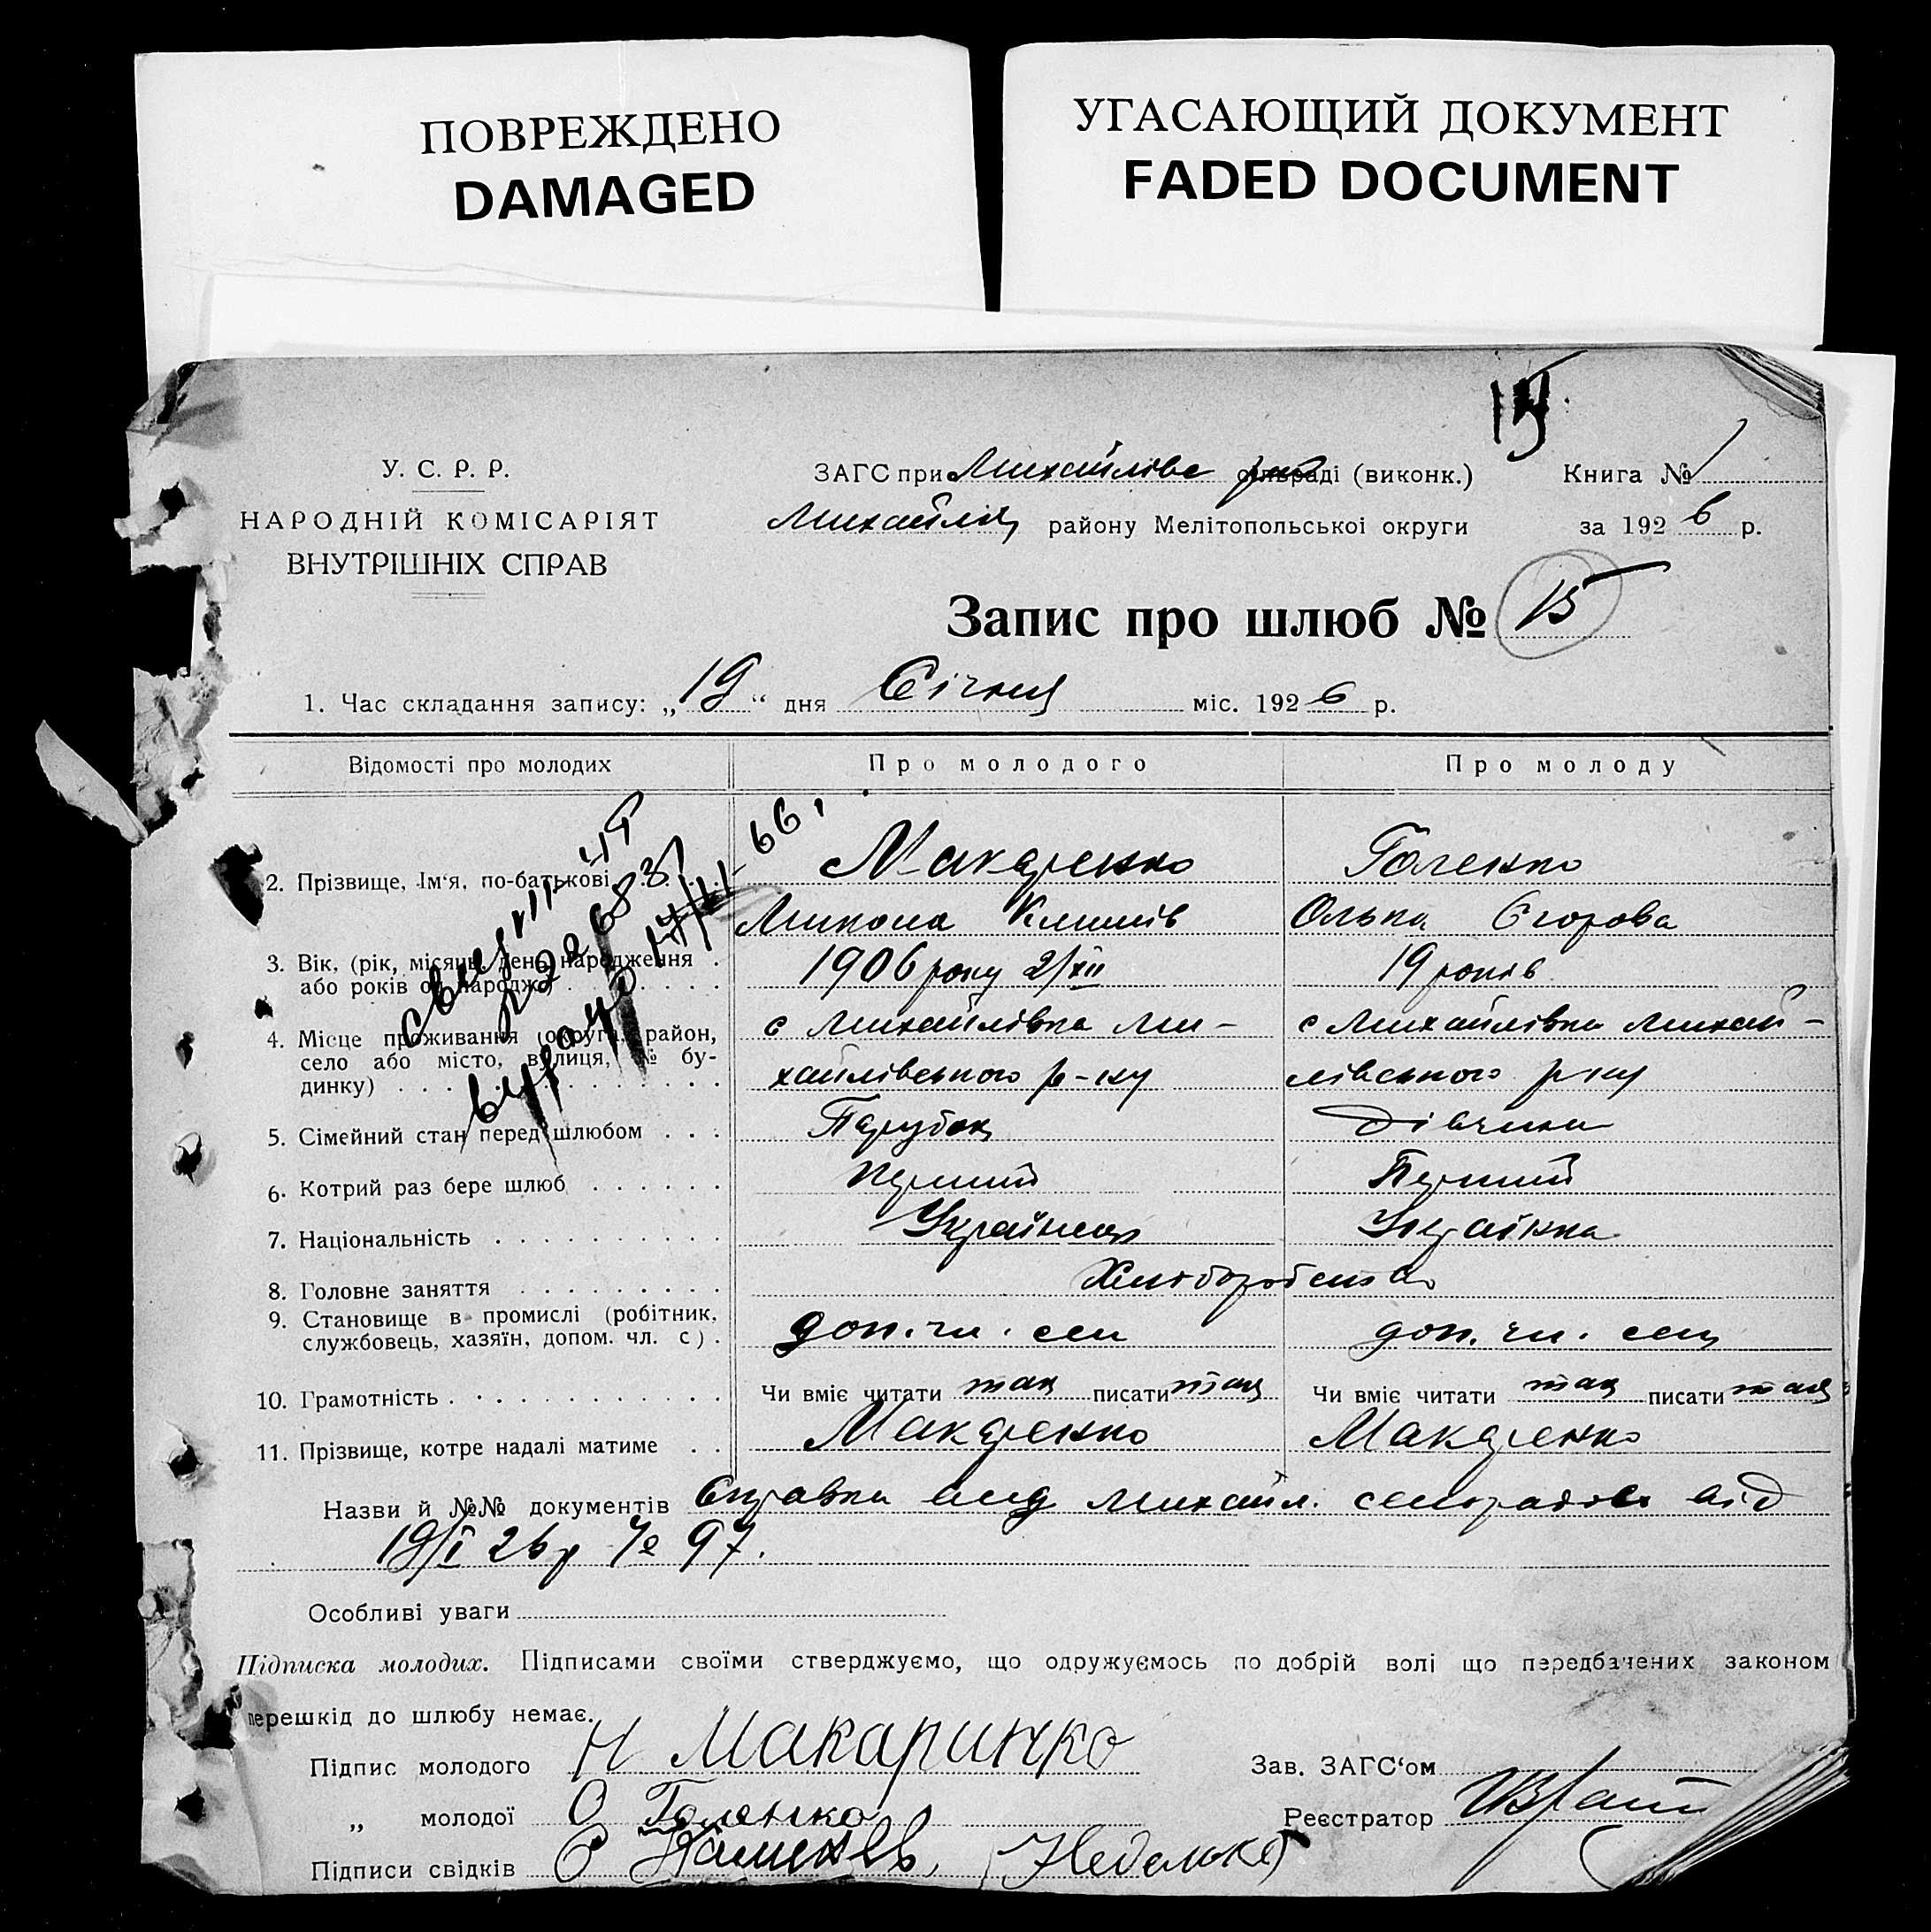 ПОВРЕЖДЕНО
DAMAGED
УГАСАЮЩИЙ ДОКУМЕНТ
FADED DOCUMENT
15
У. С. Р. Р.
НАРОДНІЙ КОМІСАРІЯТ
ВНУТРІШНІХ СПРАВ
ЗАГС при Михайлівс сільраді (виконк.) Книга № 1
Михайлів району Мелітопольської округи за 1926 р.
Запис про шлюб № 15
1. Час складання запису: „19“ дня Січня міс. 1926 р.
Відомості про молодих Про молодого Про молоду
2. Прізвище, Ім'я, по-батькові Макаренко Голенко
Микола Климів Олька Єгорова
3. Вік, (рік, місяць, день народження 1906 року 2/XII 19 років
або років од народж.)
4. Місце проживання (округа, район, с Михайлівка Ми- с Михайлівка Михай-
село або місто, вулиця, № бу- хайлівського р-ну лівського р-ну
динку)
5. Сімейний стан перед шлюбом Парубок Дівчина
6. Котрий раз бере шлюб Перший Перший
7. Національність Українець Українка
8. Головне заняття Хліборобство
9. Становище в промислі (робітник, доп. чл. сем доп. чл. сем
службовець, хазяїн, допом. чл. с)
10. Грамотність Чи вміє читати так писати так Чи вміє читати так писати так
11. Прізвище, котре надалі матиме Макаренко Макаренко
Назви й №№ документів Справка Михайл. від
19/I 26 р № 97.
Особливі уваги
Підписка молодих. Підписами своїми стверджуємо, що одружуємось по добрій волі що передбачених законом
перешкід до шлюбу немає.
Підпис молодого Н Макаринко Зав. ЗАГС'ом
„ молодої О Голенко Реєстратор
Підписи свідків